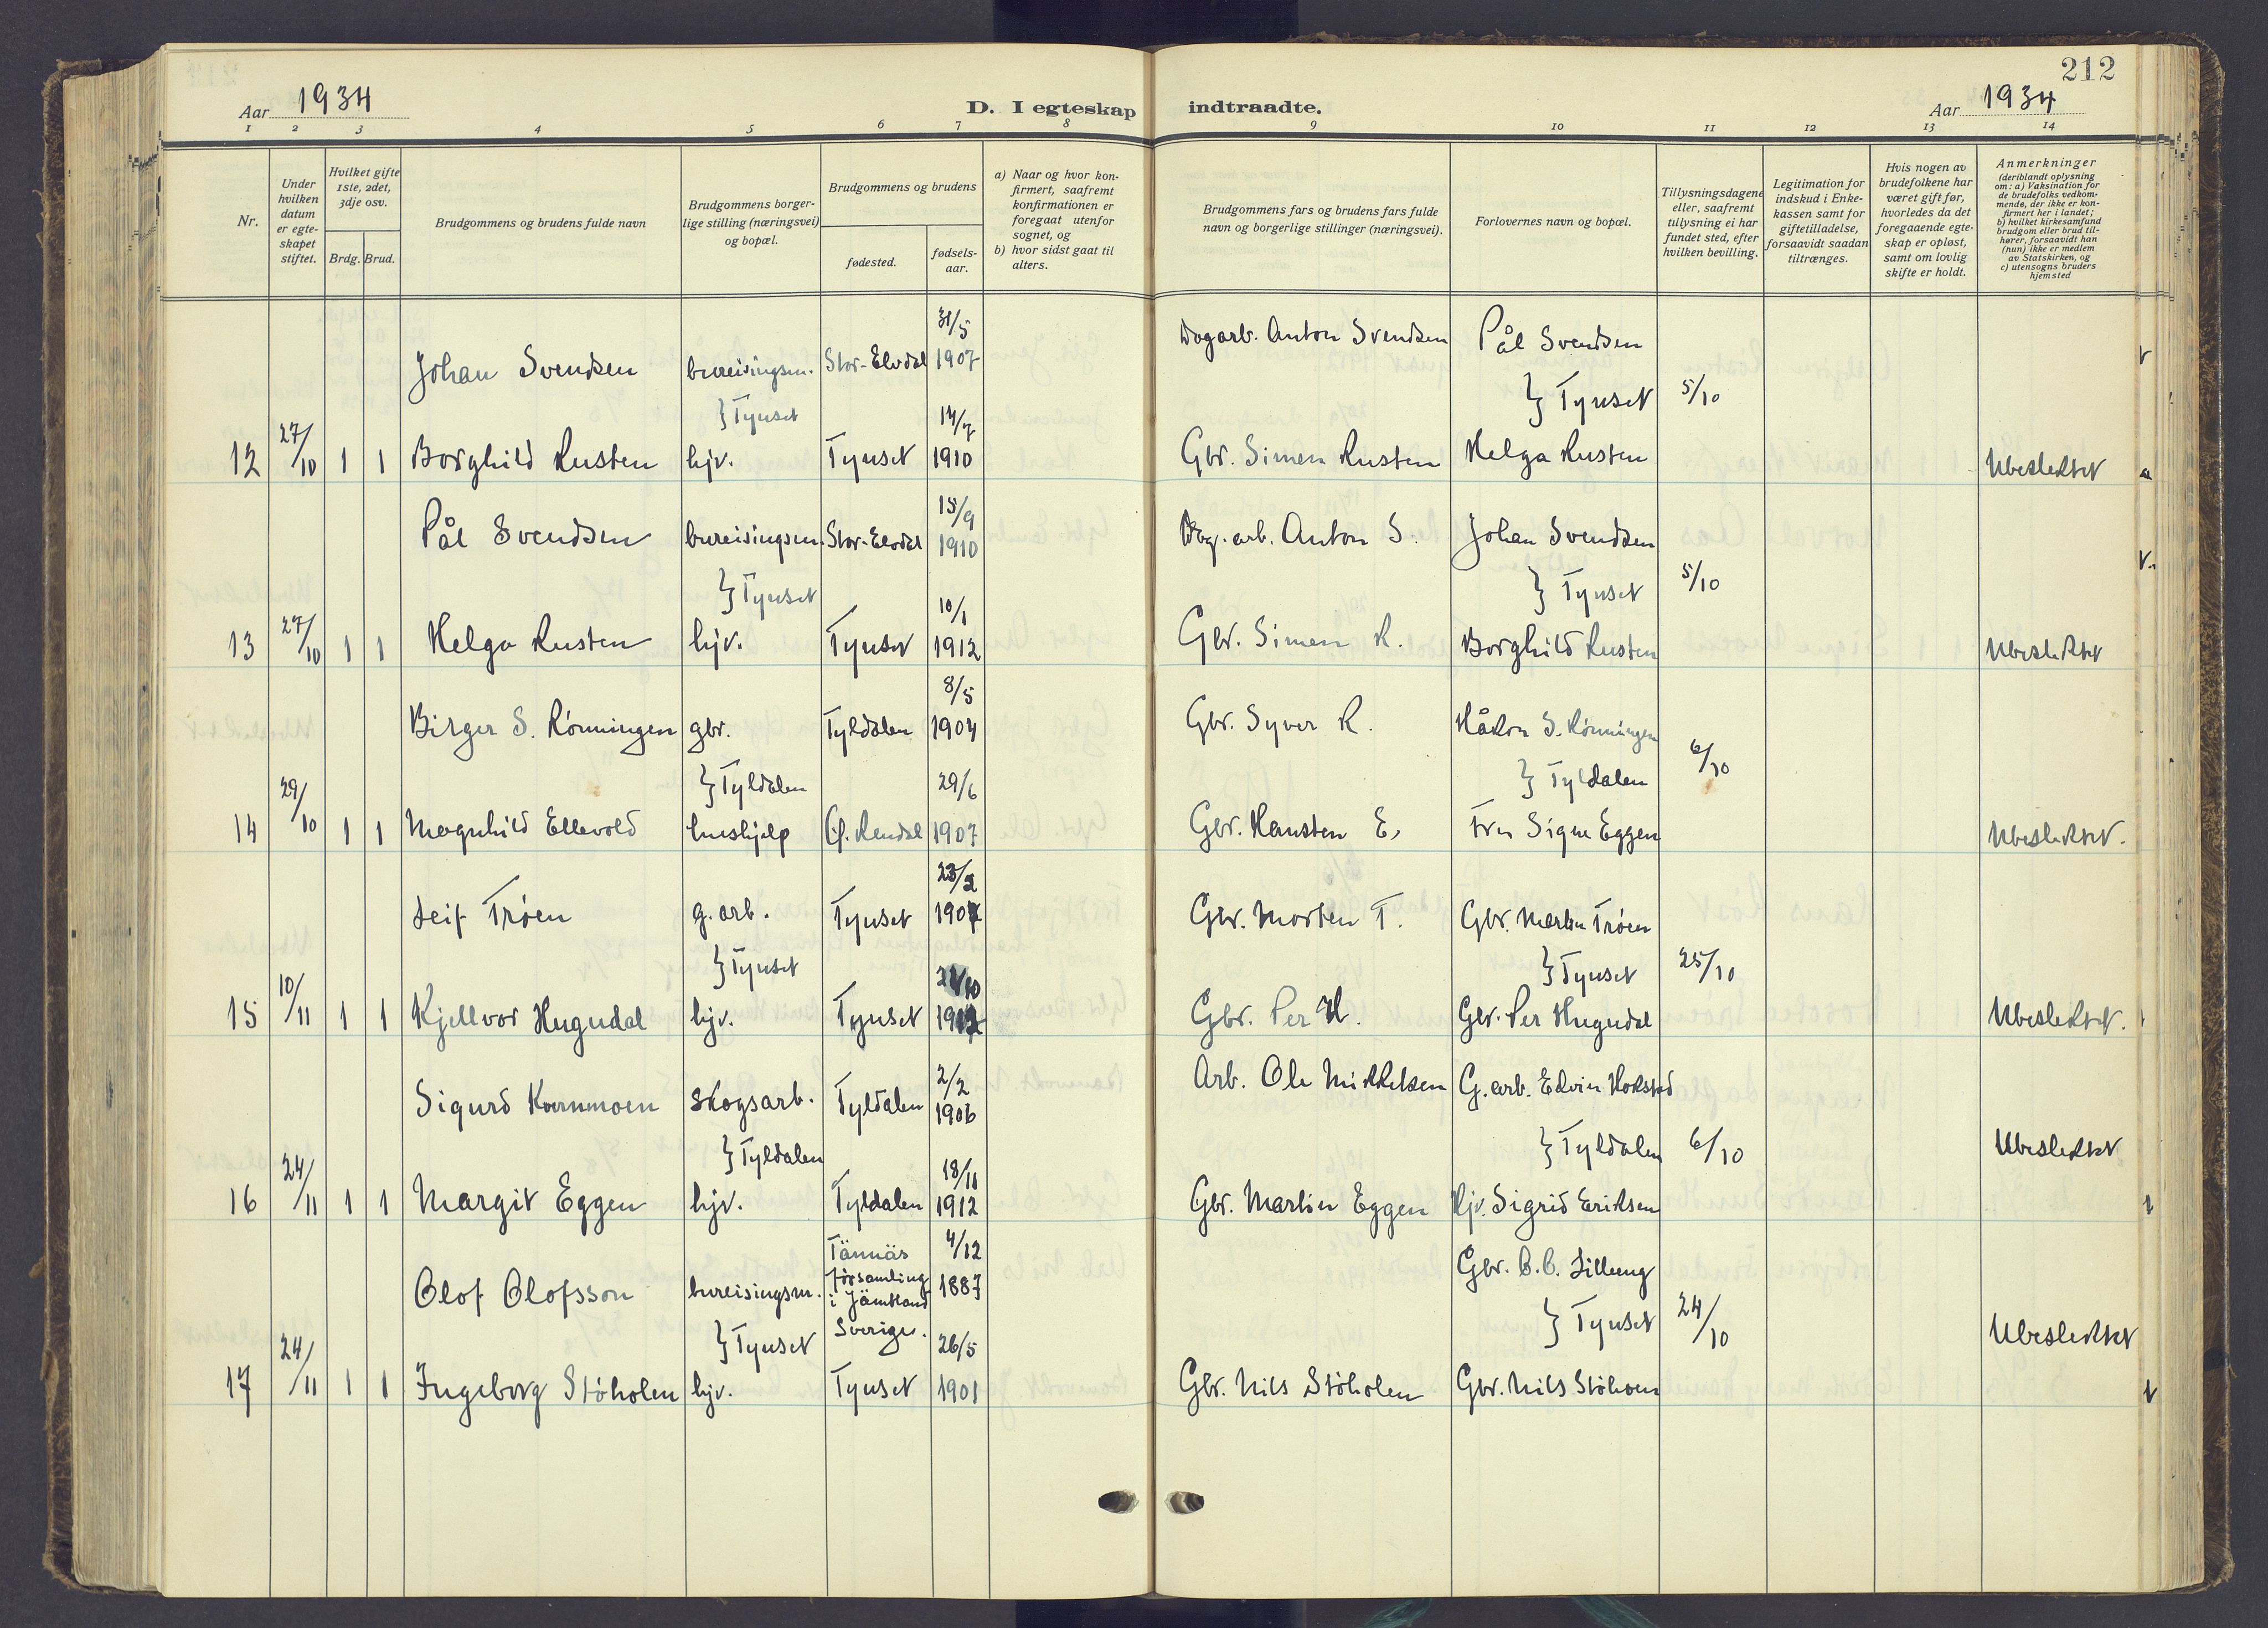 Aar 1934
D. I egteskap indtraadte.
212
Aar 1934
1 2 3 4 5 6 7 8 9 10 11 12 13 14
Nr.
Under hvilken datum er egte-skapet stiftet.
Hvilket gifte 1ste, 2det, 3dje osv.
Brdg. Brud.
Brudgommens og brudens fulde navn
Brudgommens borger-lige stilling (næringsvei) og bopæl.
Brudgommens og brudens
fødested.
fødsels-aar.
a) Naar og hvor kon-firmert, saafremt konfirmationen er foregaat utenfor sognet, og
b) hvor sidst gaat til alters.
Brudgommens fars og brudens fars fulde navn og borgerlige stillinger (næringsvei).
Forlovernes navn og bopæl.
Tillysningsdagene eller, saafremt tillysning ei har fundet sted, efter hvilken bevilling.
Legitimation for indskud i Enke-kassen samt for giftetilladelse, forsaavidt saadan tiltrænges.
Hvis nogen av brudefolkene har været gift før, hvorledes da det foregaaende egte-skap er opløst, samt om lovlig skifte er holdt.
Anmerkninger
(deriblandt oplysning om: a) Vaksination for de brudefolks vedkom-mende, der ikke er kon-firmert her i landet; b) hvilket kirkesamfund brudgom eller brud til-hører, forsaavidt han (hun) ikke er medlem av Statskirken, og c) utensogns bruders hjemsted
31/5
Johan Svendsen bureisingsm. Stor-Elvdal 1907 Dagarb. Anton Svendsen Pål Svendsen
} Tynset 14/7 } Tynset 5/10
12 27/10 1 1 Borghild Rusten hjv. Tynset 1910 Gbr. Simen Rusten Helga Rusten Ubeslektet
15/9
Pål Svendsen bureisingsm. Stor-Elvdal 1910 Dag. arb. Anton S. Johan Svendsen
} Tynset 10/1 } Tynset 5/10
13 27/10 1 1 Helga Rusten hjv. Tynset 1912 Gbr. Simen R. Borghild Rusten Ubeslektet
8/5
Birger S. Rønningen gbr. Tyldalen 1904 Gbr. Syver R. Håkon S. Rønningen
} Tyldalen 29/6 } Tyldalen 6/10
14 29/10 1 1 Magnhild Ellevold hushjelp Ø. Rendal 1907 Gbr. Hansten E. Fru Signe Eggen Ubeslektet.
23/2
Leif Trøen g. arb. Tynset 1907 Gbr. Morten T. Gbr. Martin Trøen
} Tynset } Tynset 25/10
15 10/11 1 1 Kjellvor Hugudal hjv. Tynset Gbr. Per H. Gbr. Per Hugudal Ubeslektet.
2/2
Sigurd Kvernmoen skogsarb. Tyldalen 1906 Arb. Ole Mikkelsen G. arb. Edvin Hokstad
} Tyldalen 18/11 } Tyldalen 6/10 Ubeslektet
16 24/11 1 1 Margit Eggen hjv. Tyldalen 1912 Gbr. Martin Eggen Hjv. Sigrid Eriksen
Tännäs församling i Jämtland Sverige. 4/12
Olof Olofsson bureisingsm. 1887 Gbr. O. O. Lilleeng
} Tynset 26/5 } Tynset 24/10 Ubeslektet
17 24/11 1 1 Ingeborg Støholen hjv. Tynset 1901 Gbr. Nils Støholen Gbr. Nils Støholen